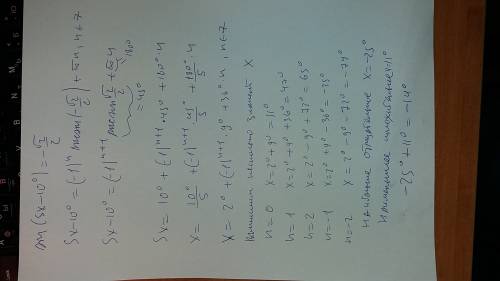 sin(5x-10°) = -√2/2
5x-10° = (-1)ⁿ arcsin(-√2/2) + πn, n∈Z
5x-10° = (-1)ⁿ⁺¹ arcsin √2/2 + πn
= 45° 180°
5x = 10° + (-1)ⁿ⁺¹ · 45° + 180° · n
x = 10°/5 + (-1)ⁿ⁺¹ · 45°/5 + 180°/5 n
x = 2° + (-1)ⁿ⁺¹ · 9° + 36° n, n∈Z
значений x
n=0 x=2°+9°=11°
n=1 x=2°+9°+36°=47°
n=2 x=2°-9°+72°=65°
n=-1 x=2°+9°-36°=-25°
n=-2 x=2°-9°-72°=-79°
Наибольшее отрицательное x=-25°
Наименьшее положительное x=11°
-25°+11° = -14°